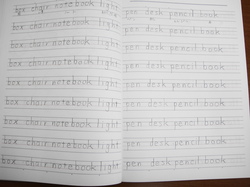 box chair notebook light
box chair notebook light
box chair notebook light
box chair notebook light
box chair notebook light
box chair notebook light
box chair notebook light
box chair notebook light
box chair notebook light
pen desk pencil book
pen desk pencil book
pen desk pencil book
pen desk pencil book
pen desk pencil book
pen desk pencil book
pen desk pencil book
pen desk pencil book
pen desk pencil book